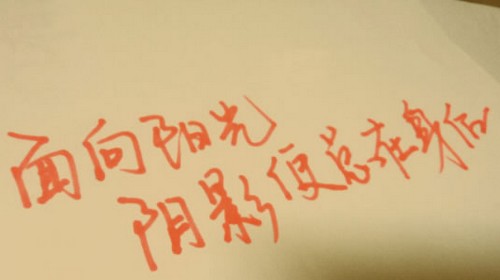 面向阳光
阴影便总在身后